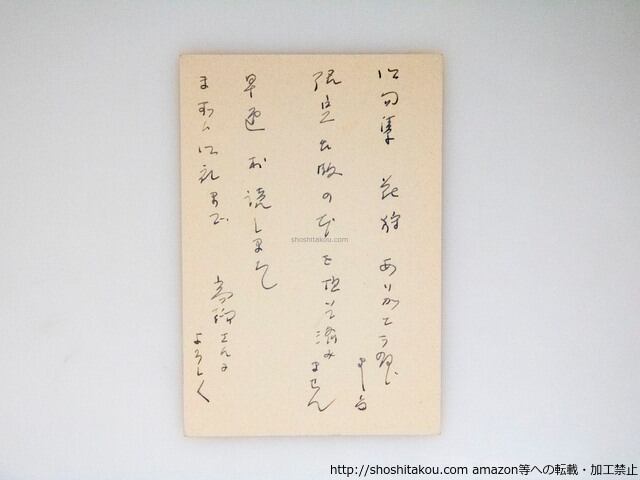 御句集 花狩 ありがとう
限定出版の本を 済みません
早速 拝読しました
まずは御礼まで
高柳さんに
よろしく
shoshitakou.com
http://shoshitakou.com amazon等への転載・加工禁止